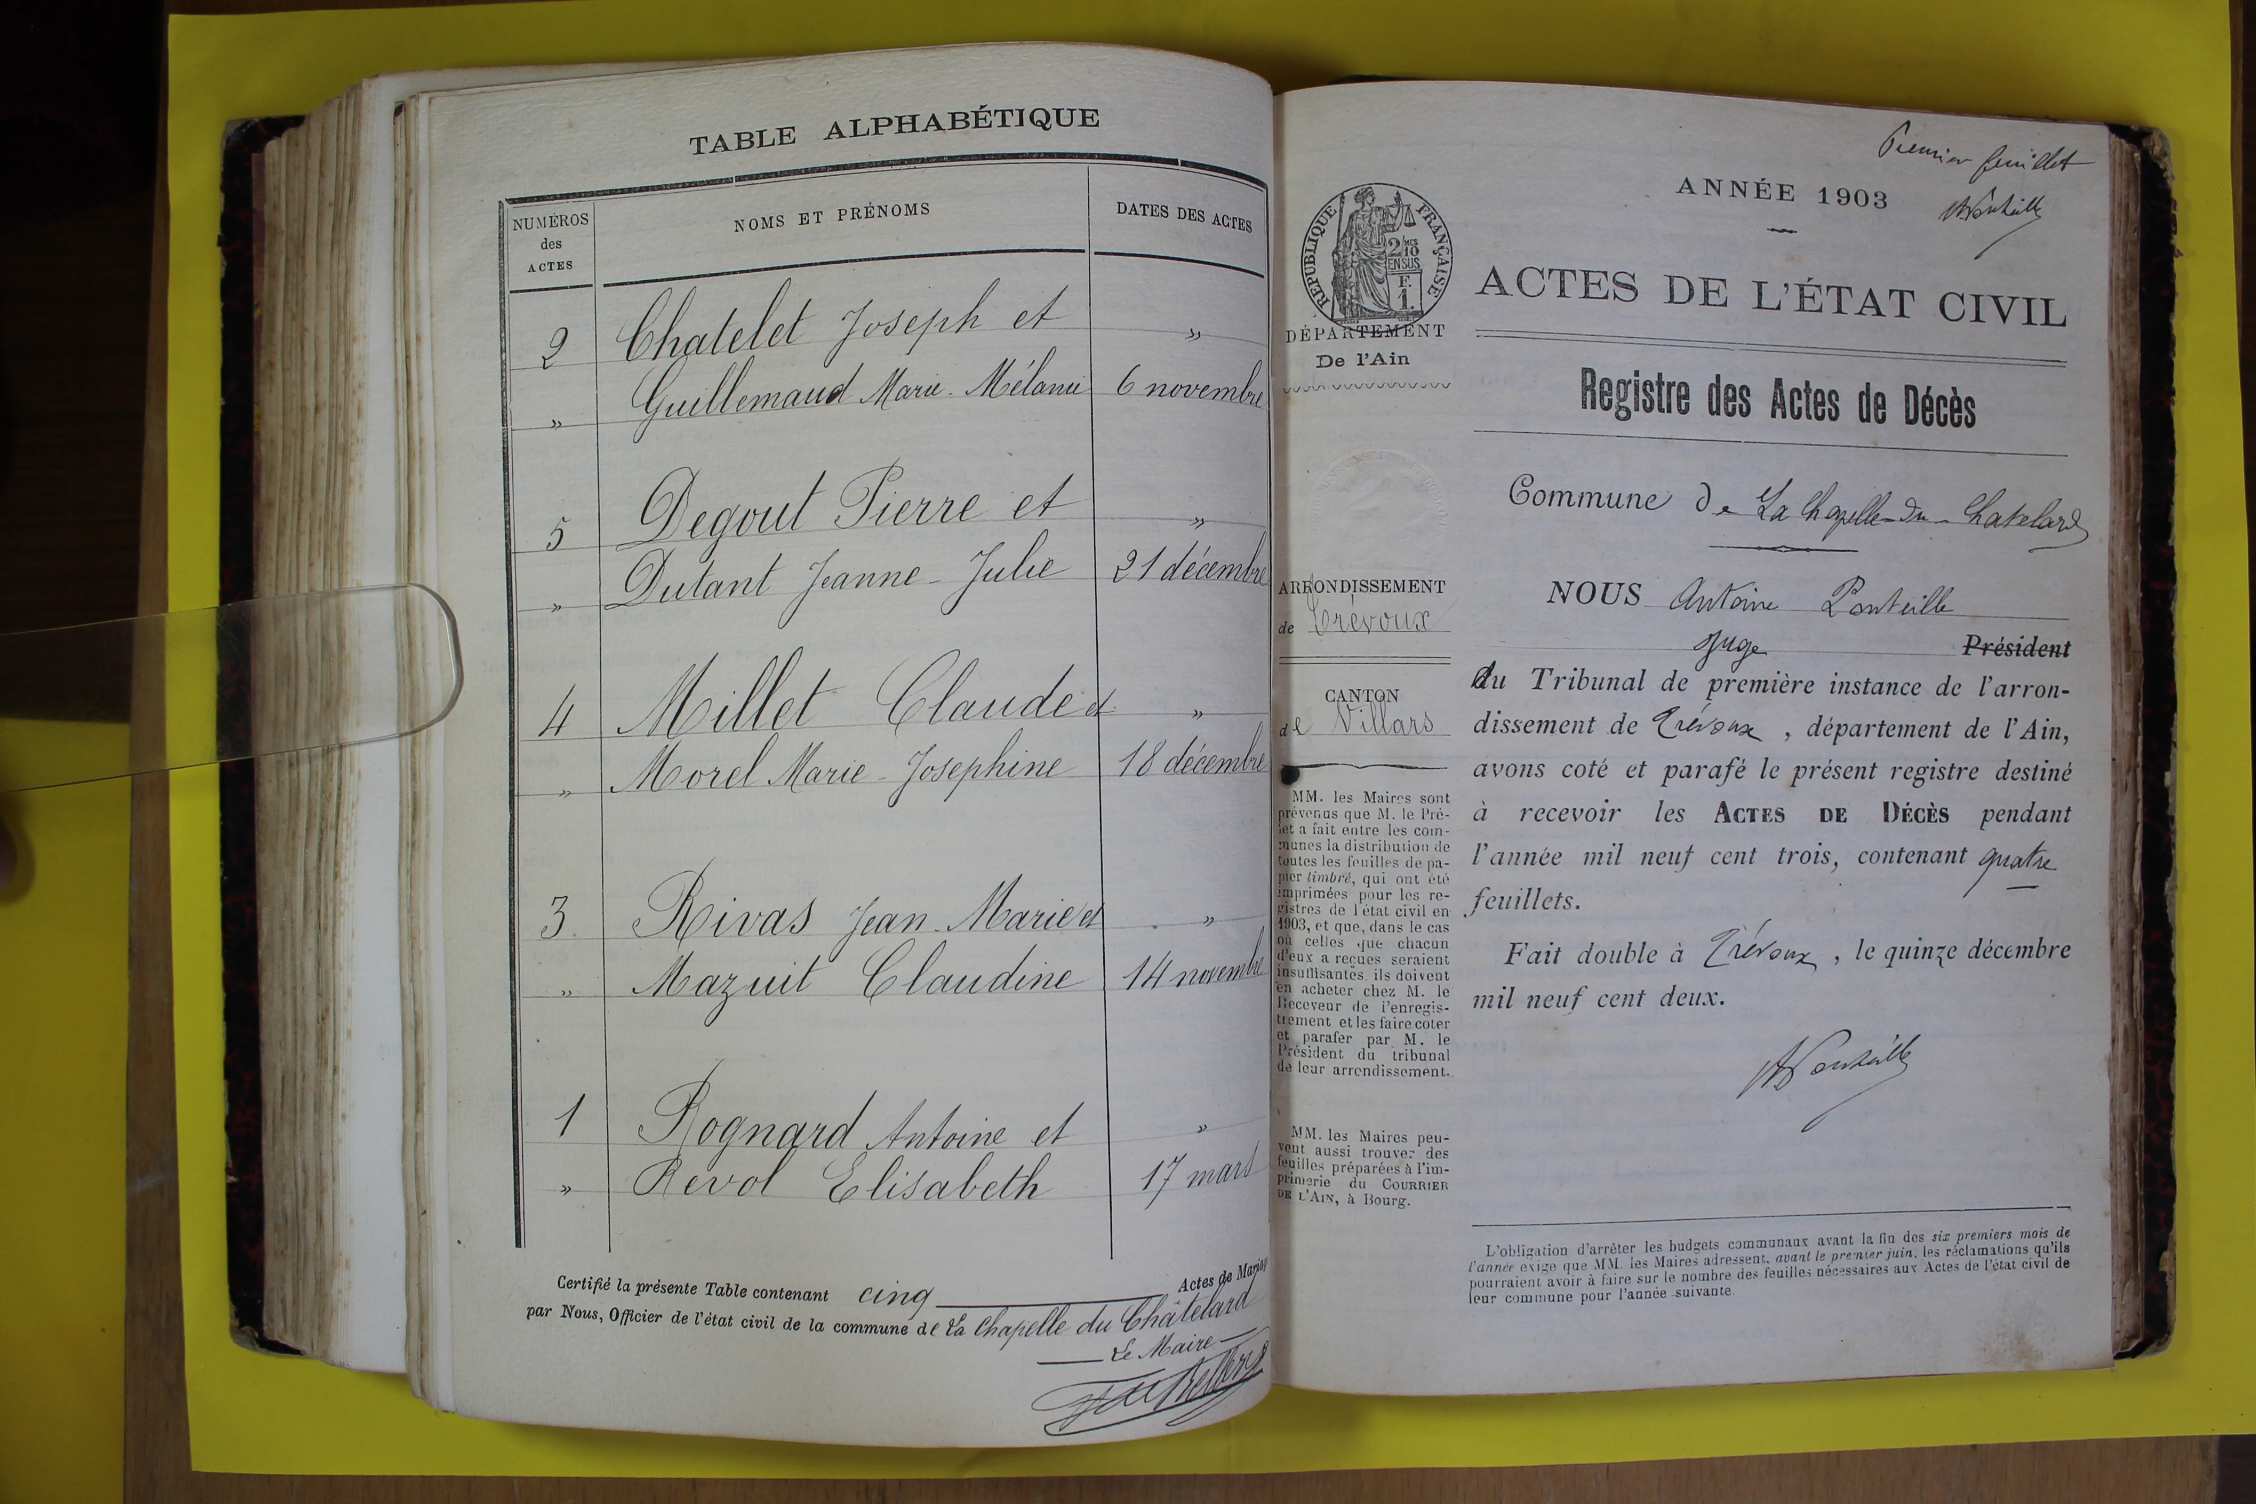 TABLE ALPHABÉTIQUE
NUMÉROS des ACTES
NOMS ET PRÉNOMS
DATES DES ACTES
2 Chatelet Joseph et "
" Guillemaud Marie-Mélanie 6 novembre
5 Degout Pierre et "
" Dutant Jeanne-Julie 21 décembre
4 Millet Claude et "
" Morel Marie-Josephine 18 décembre
3 Rivas Jean-Marie et "
" Mazuit Claudine 14 novembre
1 Rognard Antoine et "
" Revol Elisabeth 17 mars
Certifié la présente Table contenant cinq Actes de Mariage
par Nous, Officier de l'état civil de la commune de La Chapelle du Châtelard
Le Maire
Premier feuillet
APonteille
ANNÉE 1903
RÉPUBLIQUE FRANÇAISE
2/10 MES
EN SUS
F.
1.
DÉPARTEMENT
De l'Ain
ARRONDISSEMENT
de Trévoux
CANTON
de Villars
MM. les Maires sont
prévenus que M. le Pré-
fet a fait entre les com-
munes la distribution de
toutes les feuilles de pa-
pier timbré, qui ont été
imprimées pour les re-
gistres de l'état civil en
1903, et que, dans le cas
où celles que chacun
d'eux a reçues seraient
insuffisantes, ils doivent
en acheter chez M. le
Receveur de l'enregis-
trement et les faire coter
et parafer par M. le
Président du tribunal
de leur arrondissement.
MM. les Maires peu-
vent aussi trouver des
feuilles préparées à l'im-
primerie du COURRIER
DE L'AIN, à Bourg.
ACTES DE L'ÉTAT CIVIL
Registre des Actes de Décès
Commune de La Chapelle-du-Chatelard
NOUS Antoine Ponteille
Juge Président
du Tribunal de première instance de l'arron-
dissement de Trévoux, département de l'Ain,
avons coté et parafé le présent registre destiné
à recevoir les ACTES DE DÉCÈS pendant
l'année mil neuf cent trois, contenant quatre
feuillets.
Fait double à Trévoux, le quinze décembre
mil neuf cent deux.
APonteille
L'obligation d'arrêter les budgets communaux avant la fin des six premiers mois de
l'année exige que MM. les Maires adressent, avant le premier juin, les réclamations qu'ils
pourraient avoir à faire sur le nombre des feuilles nécessaires aux Actes de l'état civil de
leur commune pour l'année suivante.